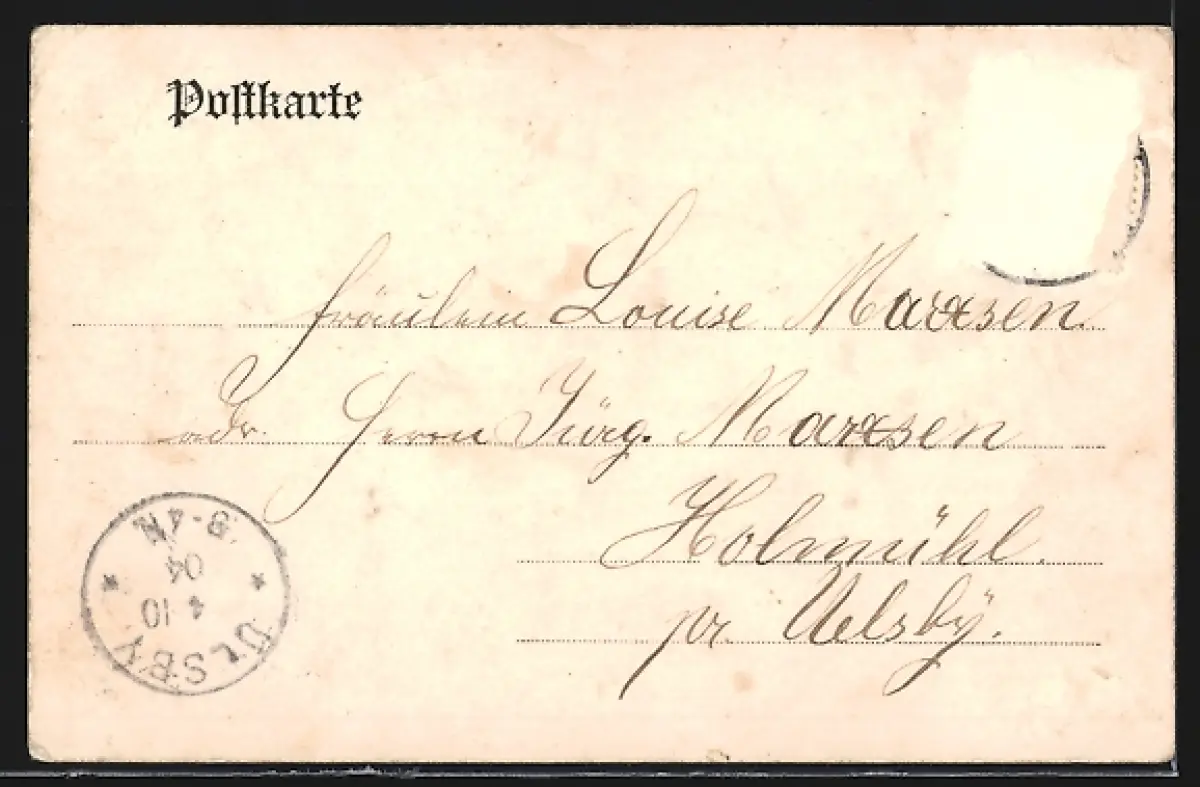 Postkarte
Fräulein Louise Marxsen.
adr. Herrn Jürg. Marxsen
Holmühl.
pr. Uelsby.
ÜLSBY
4 10
04
3-4N